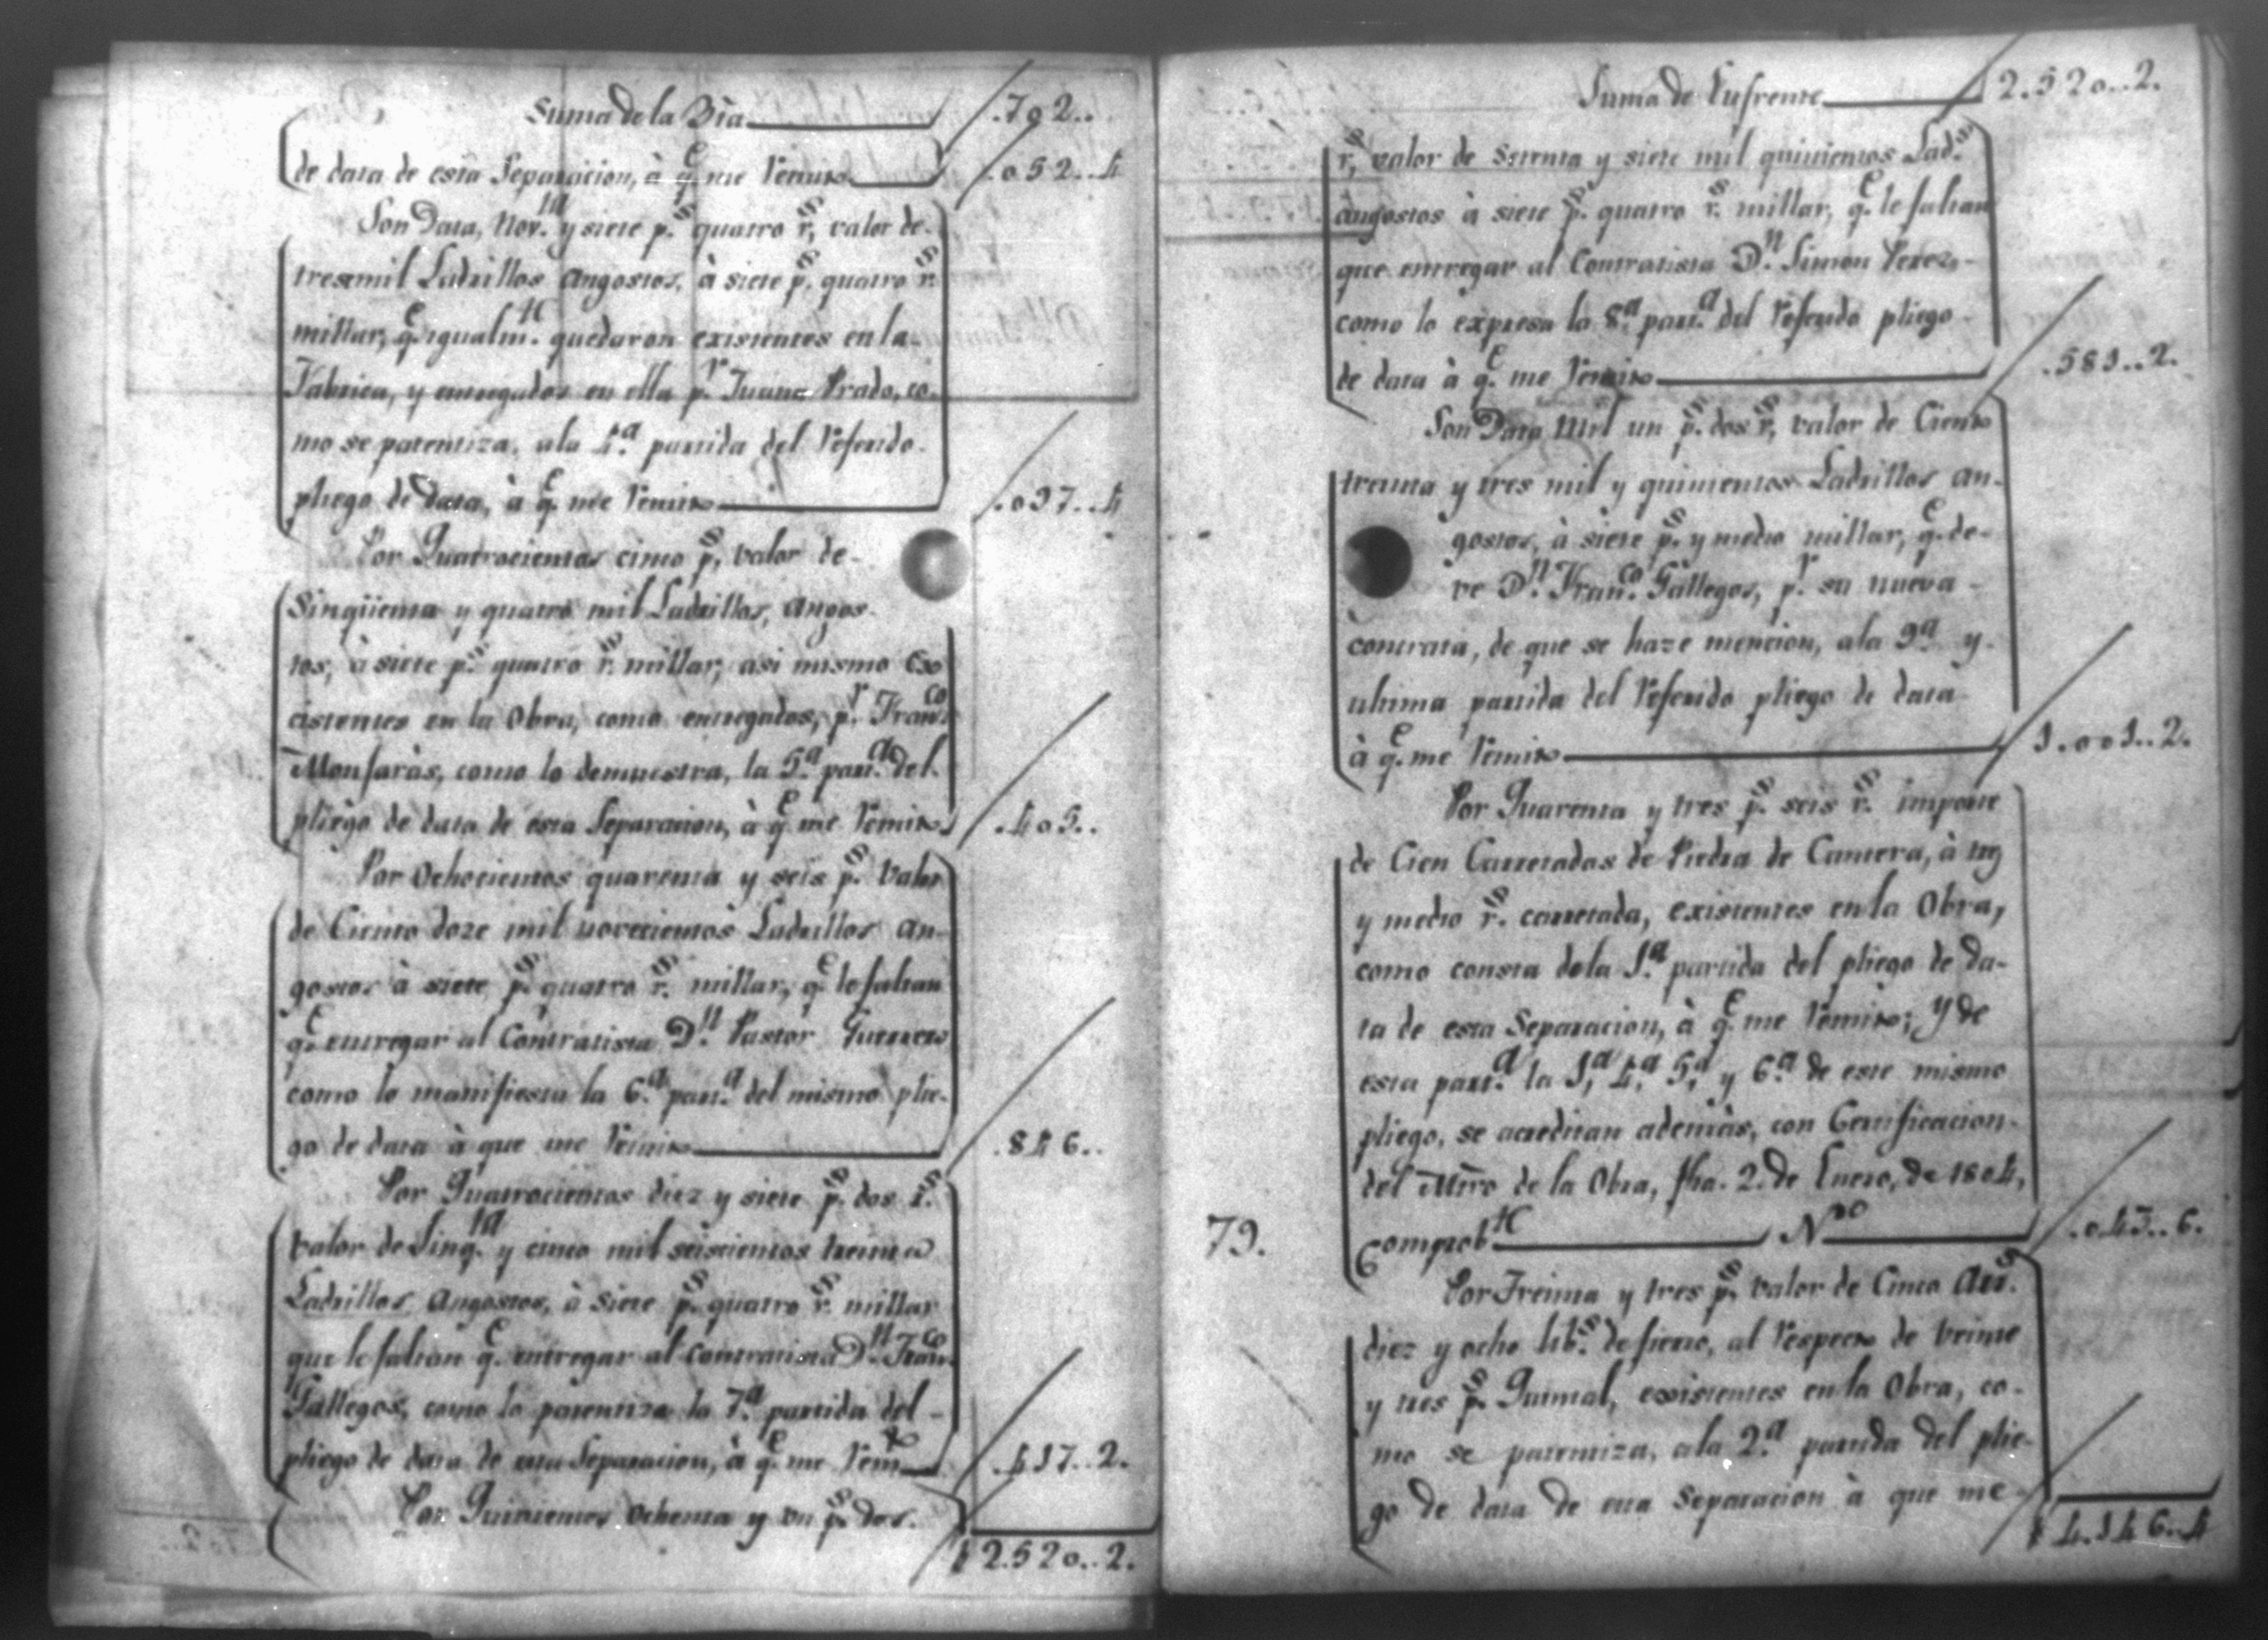 Suma de la Bta .702..
de data de esta Separacion, à q.e me remito .052..4
Son Data, Nov.ta y siete p.s quatro r.s, valor de
trese mil Ladrillos angostos, à siete p.s, quatro r.s
millar, q.e igualm.te quedaron existentes en la
Fabrica, y entregados en ella p.r Juana Prado, co-
mo se patentiza, ala 4.a partida del referido
pliego de data, à q.e me remito .097..4
Por Quatrocientos cinco p.s, valor de
Sinqüenta y quatro mil Ladrillos, angos-
tos, à siete p.s quatro r.s millar, asi mismo exs
cistentes en la Obra, como entregados, p.r Fran.co
Monfaràs, como lo demuestra, la 5.a part.a del
pliego de data de esta Separacion, à q.e me remito .405..
Por Ochocientos quarenta y seis p.s valor
de Ciento doze mil novecientos Ladrillos an-
gostos à siete p.s quatro r.s millar, q.e le faltan
q.e entregar al Contratista D.n Pastor Guerrero
como lo manifiesta la 6.a part.a del mismo plie-
go de data à que me remito .846..
Por Quatrocientos diez y siete p.s dos r.s
valor de Sinq.ta y cinco mil seiscientos treinta
Ladrillos Angostos, à siete p.s quatro r.s millar
que le faltan q.e entregar al contratista D.n Fran.co
Gallegos, como lo patentiza la 7.a partida del
pliego de data de esta Separacion, à q.e me rem.to .417..2.
Por Quinientos ochenta y un p.s dos
2.520..2.
Suma de Enfrente 2.520..2.
r.s, valor de setenta y siete mil quinientos Lad.s
àngostos à siete p.s quatro r.s millar, q.e le faltan
que entregar al Contratista D.n Simon Perez,
como lo expresa la 8.a part.a del referido pliego
de data à q.e me remito .581..2.
Son Data Mil un p.s dos r.s, valor de Ciento
treinta y tres mil y quinientos Ladrillos an-
gostos, à siete p.s y medio millar, q.e de-
ve D.n Fran.co Gallegos, p.r su nueva
contrata, de que se haze mencion, ala 9.a y
ultima partida del referido pliego de data
à q.e me remito 1.001..2.
Por Quarenta y tres p.s seis r.s importe
de Cien Carretadas de Piedra de Cantera, à tres
y medio r.s carretada, existentes en la Obra,
como consta dela 1.a partida del pliego de da-
ta de esta Separacion, à q.e me remito; y de
esta part.a la 1.a 4.a 5.a y 6.a de este mismo
pliego, se acreditan ademàs, con Certificacion
del Mtro de la Obra, fha. 2. de Enero, de 1804,
79. Comprob.te N.ro .043..6.
Por Treinta y tres p.s valor de Cinco arr.s
diez y ocho lib.s de fierro, al respecto de veinte
y tres p.s Quintal, existentes en la Obra, co-
mo se patentiza, ala 2.a partida del plie-
go de data de esta Separacion à que me
4.146..4